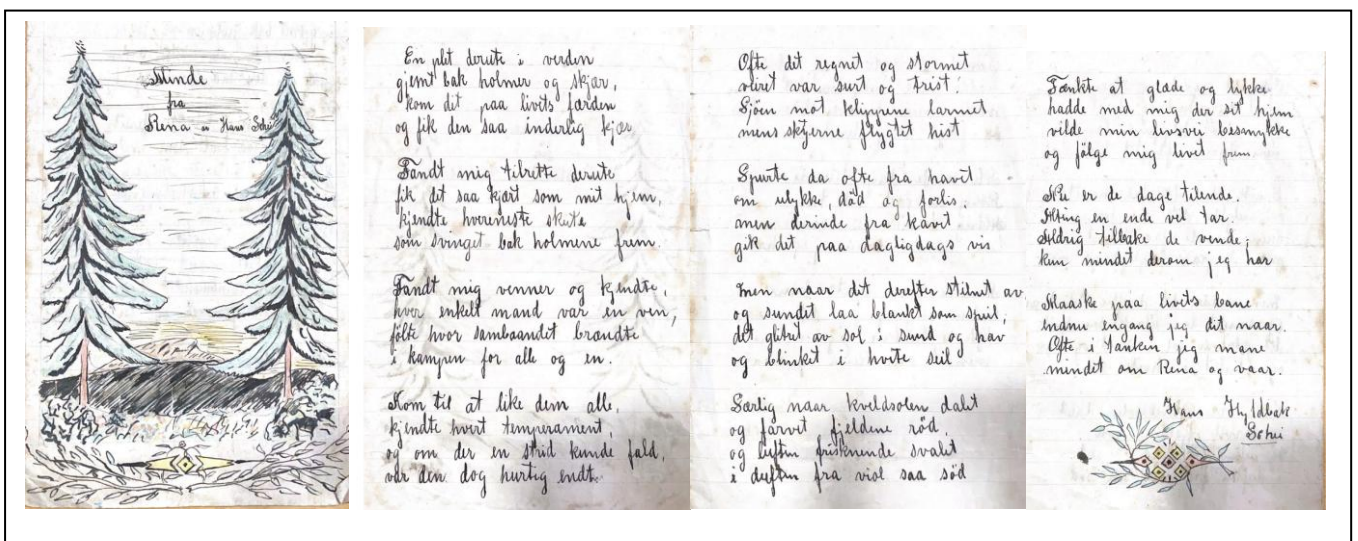 Minde
fra
Rena av Hans Sotui
En plet derute i verden
gjemt bak holmer og skjær,
kom dit paa livets færden
og fik den saa inderlig kjær
Fandt mig tilrette derute
fik det saa kjært som mit hjem,
kjendte hvereneste skute
som svinget bak holmene frem.
Fandt mig venner og kjendte,
hver enkelt mand var en ven,
følte hvor sambaandet brændte
i kampen for alle og en.
Kom til at like dem alle,
kjendte hvert temperament,
og om der en strid kunde fald,
var den dog hurtig endt.
Ofte det regnet og stormet
veiret var surt og trist.
Sjöen mot klippene larmet
mens skyerne flygtet hist
Spurte da ofte fra havet
om ulykke, död og forlis.
men derinde fra kavet
gik det paa dagligdags vis
Men naar det derefter stilnet av
og sundet laa blankt som speil,
det glitret av sol i sund og hav
og blinket i hvite seil
Særlig naar kveldsolen dalet
og farvet fjeldene röd.
og luften friskende svalet
i duften fra viol saa söd
Tænkte at glæde og lykke
hadde med mig der sit hjem
vilde min livsvei besmykke
og fölge mig livet frem.
Nu er de dage tilende.
Alting en ende vel tar.
Aldrig tilbake de vende,
kun mindet derom jeg har
Maaske paa livets bane
endnu engang jeg dit naar.
Ofte i tanken jeg mane
mindet om Rena og vaar.
Hans Hyldbak
Sotui